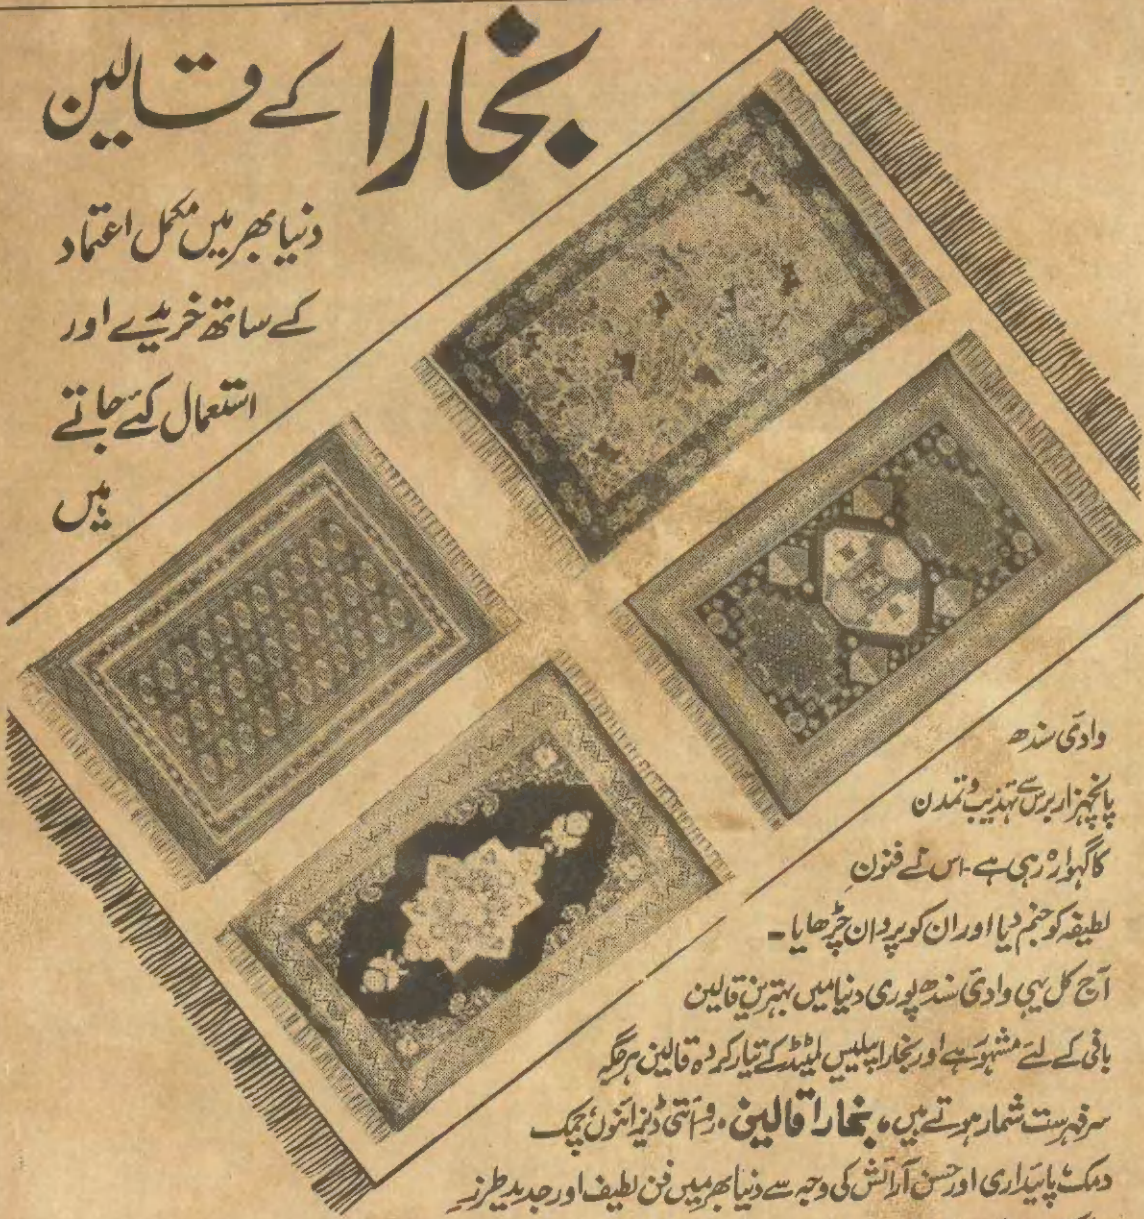 بخارا کے قالین
دنیا بھر میں مکمل اعتماد
کے ساتھ خریدے اور
استعمال کئے جاتے
ہیں
وادی سندھ
پانچہزار برس سے تہذیب و تمدن
کا گہوارہ رہی ہے۔ اس نے فنونِ
لطیفہ کو جنم دیا اور ان کو پروان چڑھایا۔
آج کل یہی وادی سندھ پوری دنیا میں بہترین قالین
بافی کے لئے مشہور ہے اور بخارا پیلیس لمیٹڈ کے تیار کردہ قالین ہر جگہ
سرفہرست شمار ہوتے ہیں، بخارا قالین، روائتی ڈیزائنوں چمک
دمک پائیداری اور حسن آرائش کی وجہ سے دنیا بھر میں فن لطیف اور جدید طرز